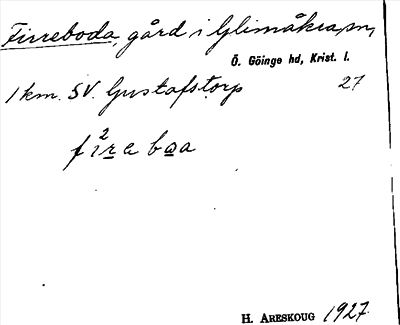 Firreboda, gård i Glimåkra sn,
Ö. Göinge hd, Krist. l.
1 km. SV. Gustafstorp 27
2
fire baa
H. ARESKOUG 1927